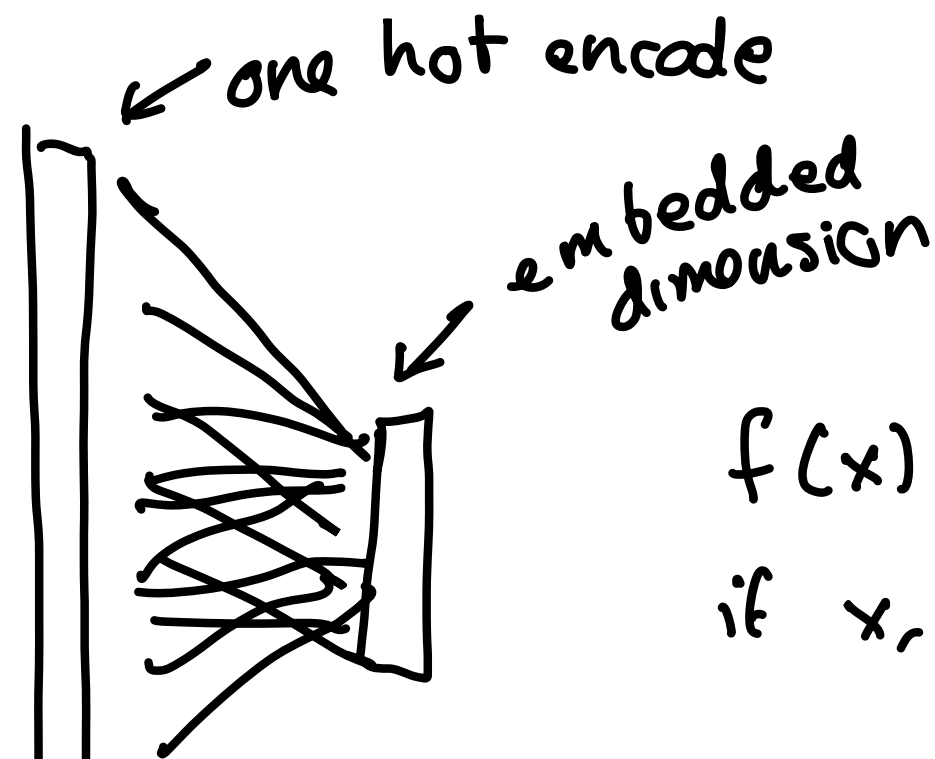 one hot encode
embedded
dimension
f(x)
if x,